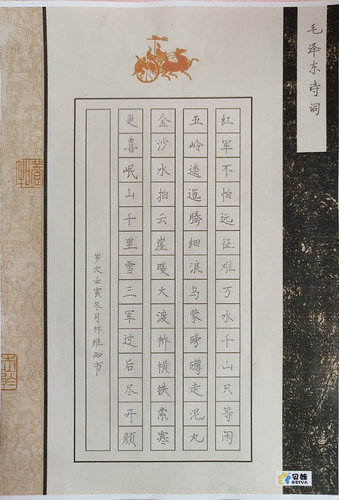 毛泽东诗词
红军不怕远征难万水千山只等闲
五岭逶迤腾细浪乌蒙磅礴走泥丸
金沙水拍云崖暖大渡桥横铁索寒
更喜岷山千里雪三军过后尽开颜
岁次壬寅冬月林维知书